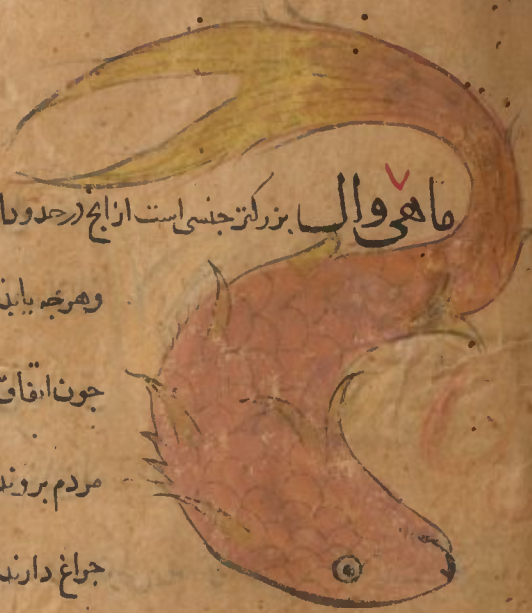 ماهی وال بزرکتر جنسی است از انج در حدود
وهرجه یابند
جون اتفاق
مردم بروند
جراغ دارند